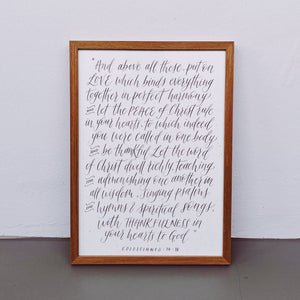 "And above all these, put on
LOVE which binds everything
together in perfect harmony.
AND let the PEACE of Christ rule
in your hearts, to which indeed
you were called in one body.
AND be thankful. Let the word
of Christ dwell richly, teaching,
AND admonishing one another in
all wisdom, singing psalms
AND hymns & spiritual songs,
with THANKFULNESS in
your hearts to God"
COLOSSIANS